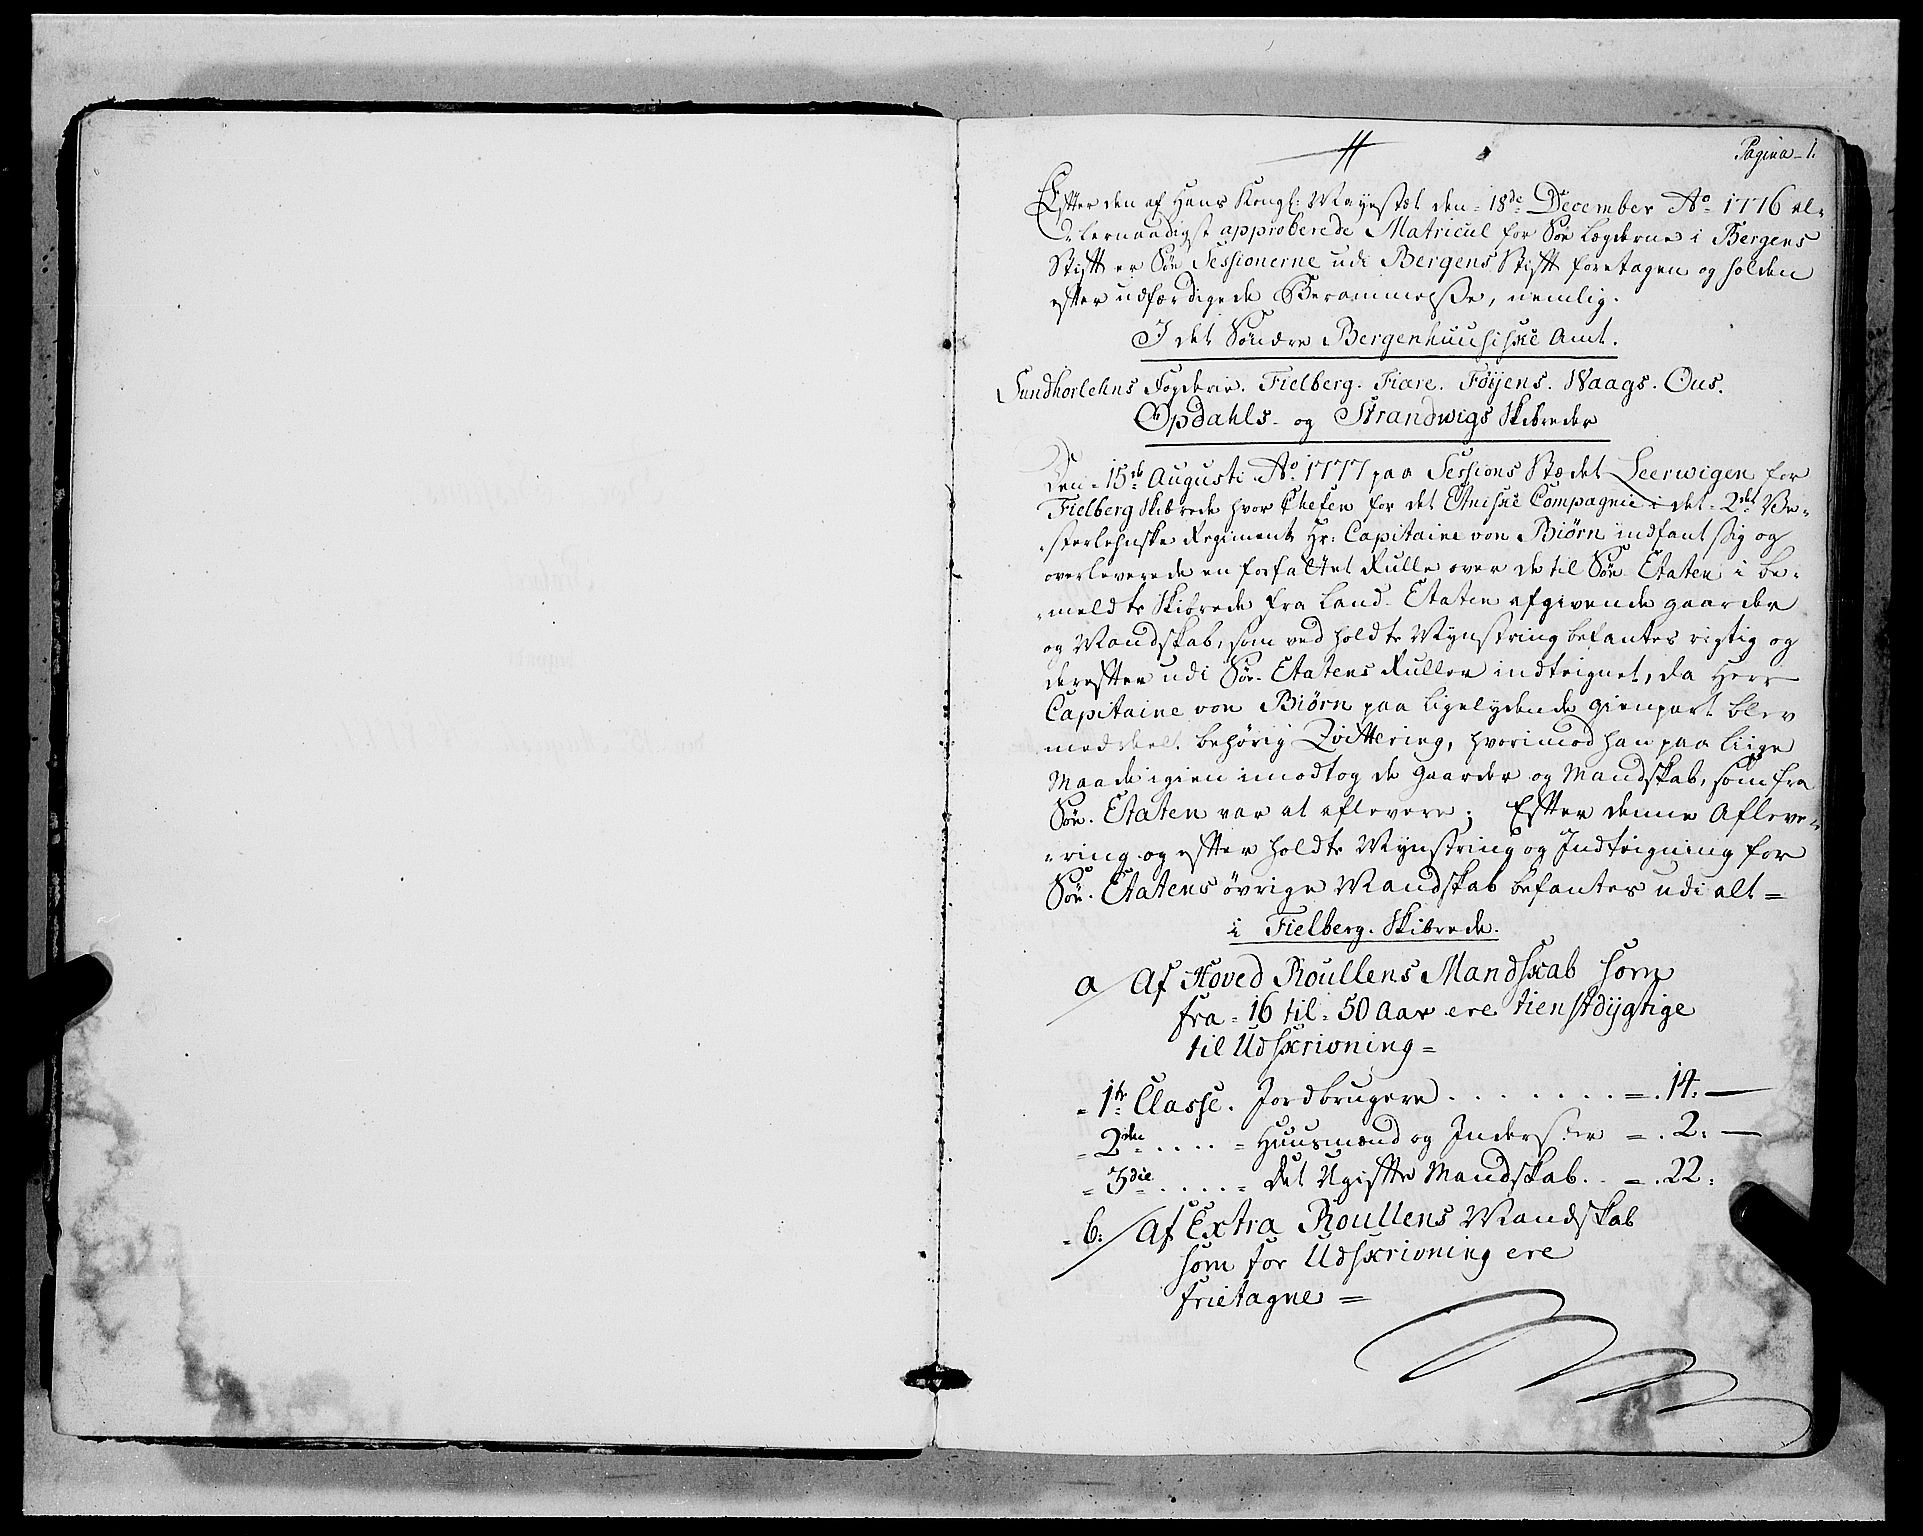 Pagina 1.
Efter den af Hans Kongl: Mayestæt den 18de December Ao 1776 al-
lernaadigst approberede Matricul for Søe Lægderne i Bergens
Stift er Søe Sessionerne udi Bergens Stift foretagen og holden
efter udfærdigede Berammelße, nemlig.
I det Søndre Bergenhuusiske Amt.
Sundhorlehns Fogderie. Fielberg. Fiære. Føyens. Waags. Ous.
Opdahls- og Strandwigs Skibreder
Den 15de Augusti Ao 1777 paa Sessions Stædet Leerwigen for
Fielberg Skibrede hvor Chefen for det Etniske Compagnie i det 2det Ve-
sterlehnske Regiment Hr: Capitaine von Biørn indfant sig og
overleverede en forfattet Rulle over de til Søe Etaten i be-
meldte Skibrede fra Land-Etaten afgivende gaarder
og Mandskab, som ved holdte Mynstring befantes rigtig og
derefter udi Søe-Etatens Ruller indteignet, da Herr
Capitaine von Biørn paa ligelydende gienpart blev
meddeelt behørig Qvittering, hvorimod han paa liige
Maade igien imodtog de Gaarder og Mandskab, som fra
Søe-Etaten var at aflevere; Efter denne Afleve-
ring og efter holdte Mynstring og Indteigning for
Søe-Etatens øvrige Mandskab befantes udi alt =
i Fielberg Skibrede.
a/ Af Hoved Roullens Mandskab som
fra 16 til 50 Aar ere tienstdygtige
til Udskrivning =
1te Classe. Jordbrugere . . . . . . . = . 14. —
2den . . . . = Huusmænd og Inderster = . 2. —
3die . . . . = Det Ugifte Mandskab . . = . 22:
b:/ Af Extra Roullens Mandskab
som for Udskrivning ere
frietagne =